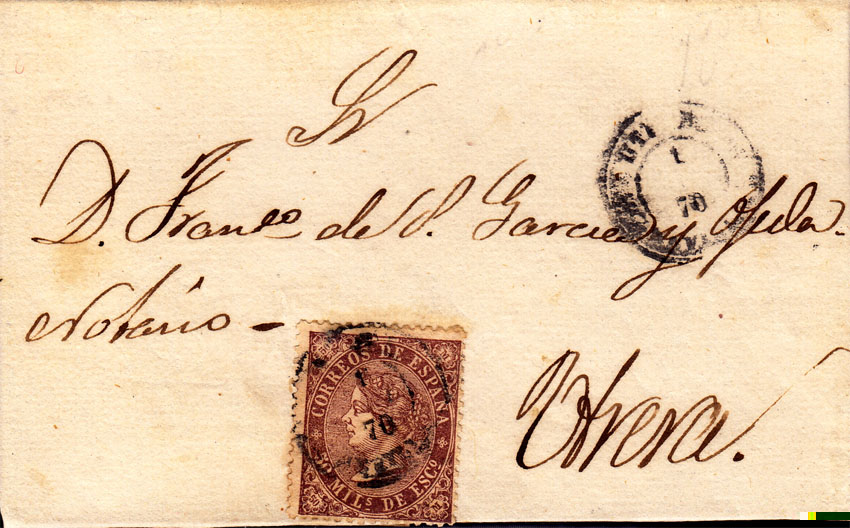 Sr
D. Franco de P. Garcia y Ojeda.
Notario -
Utrera.
70
CORREOS DE ESPAÑA
70
50 MILS DE ESCO